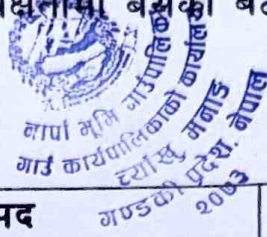 बसेको
नार्पा भूमि गाउँपालिका
गाउँ कार्यपालिकाको कार्यालय
च्याखु मनाङ
गण्डकी प्रदेश, नेपाल
२०७३
पद